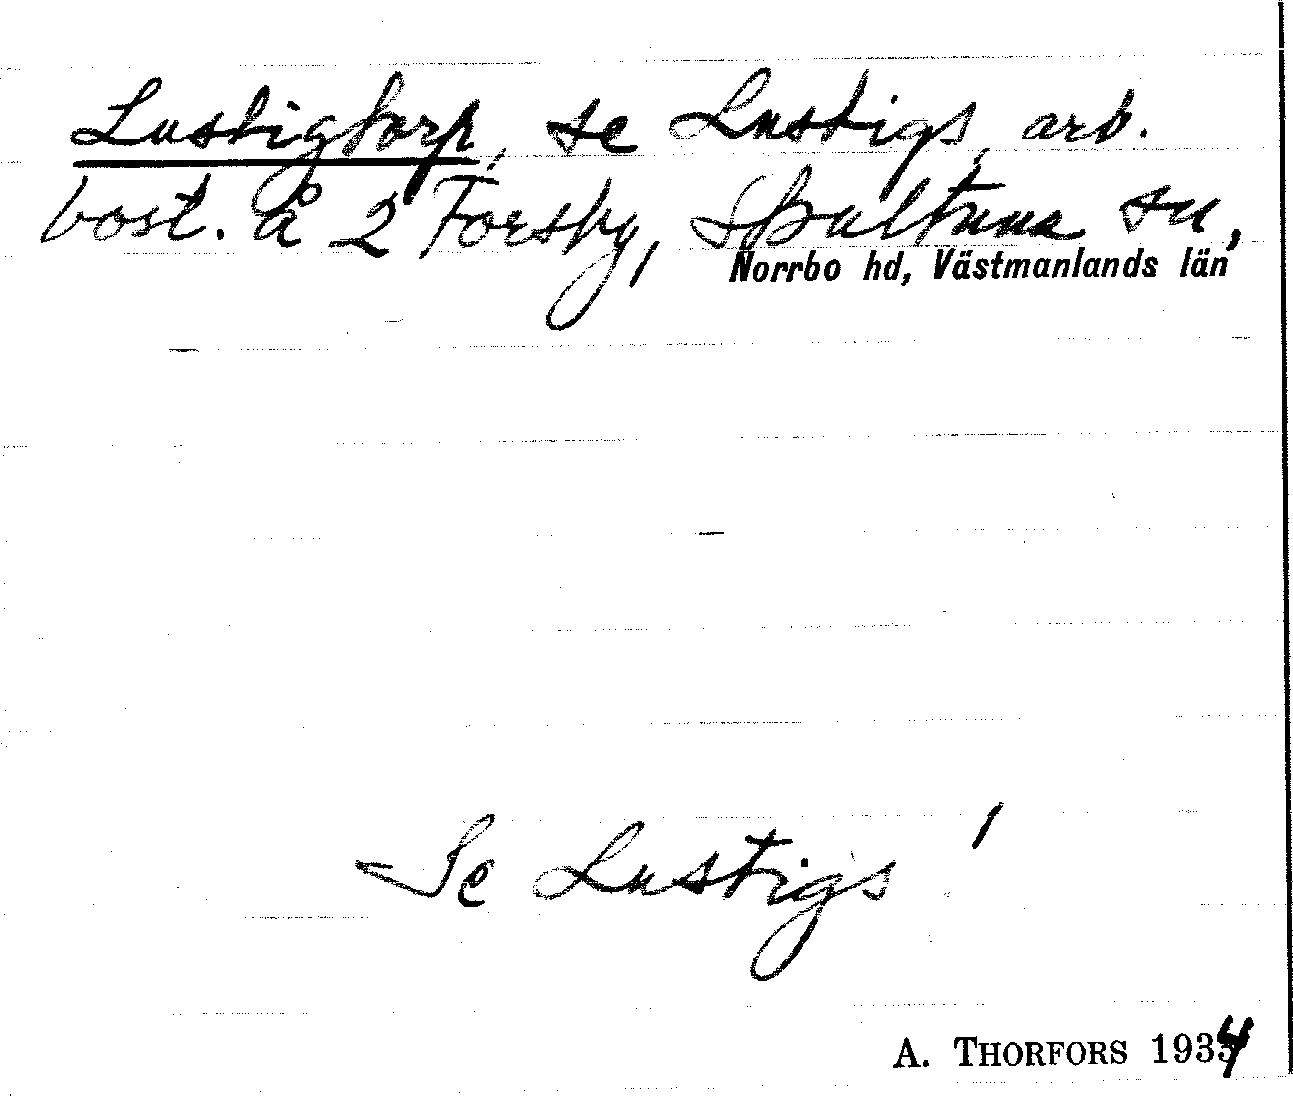 Lustigtorp, se Lustigs, arb.
bost. å 2 Forsby, Skultuna sn,
Norrbo hd, Västmanlands län
Se Lustigs
A. THORFORS 1934